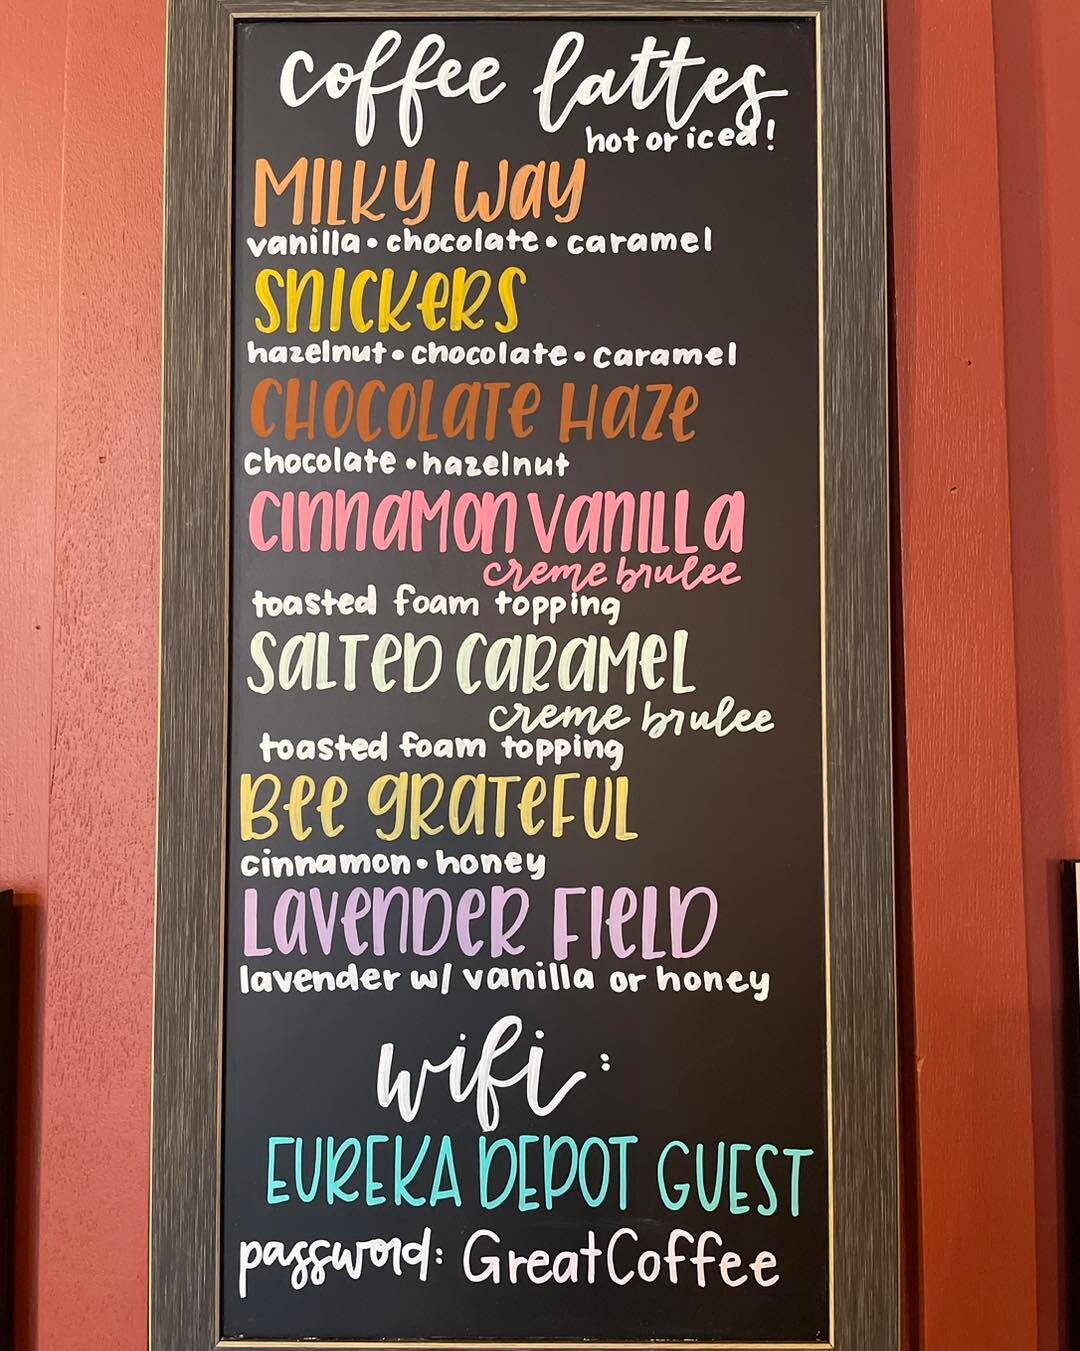 coffee lattes
hot or iced!
MILKY WAY
vanilla • chocolate • caramel
SNICKERS
hazelnut • chocolate • caramel
CHOCOLATE HAZE
chocolate • hazelnut
CINNAMON VANILLA
creme brulee
toasted foam topping
SALTED CARAMEL
creme brulee
toasted foam topping
BEE GRATEFUL
cinnamon • honey
LAVENDER FIELD
lavender w/ vanilla or honey
wifi:
EUREKA DEPOT GUEST
password: GreatCoffee